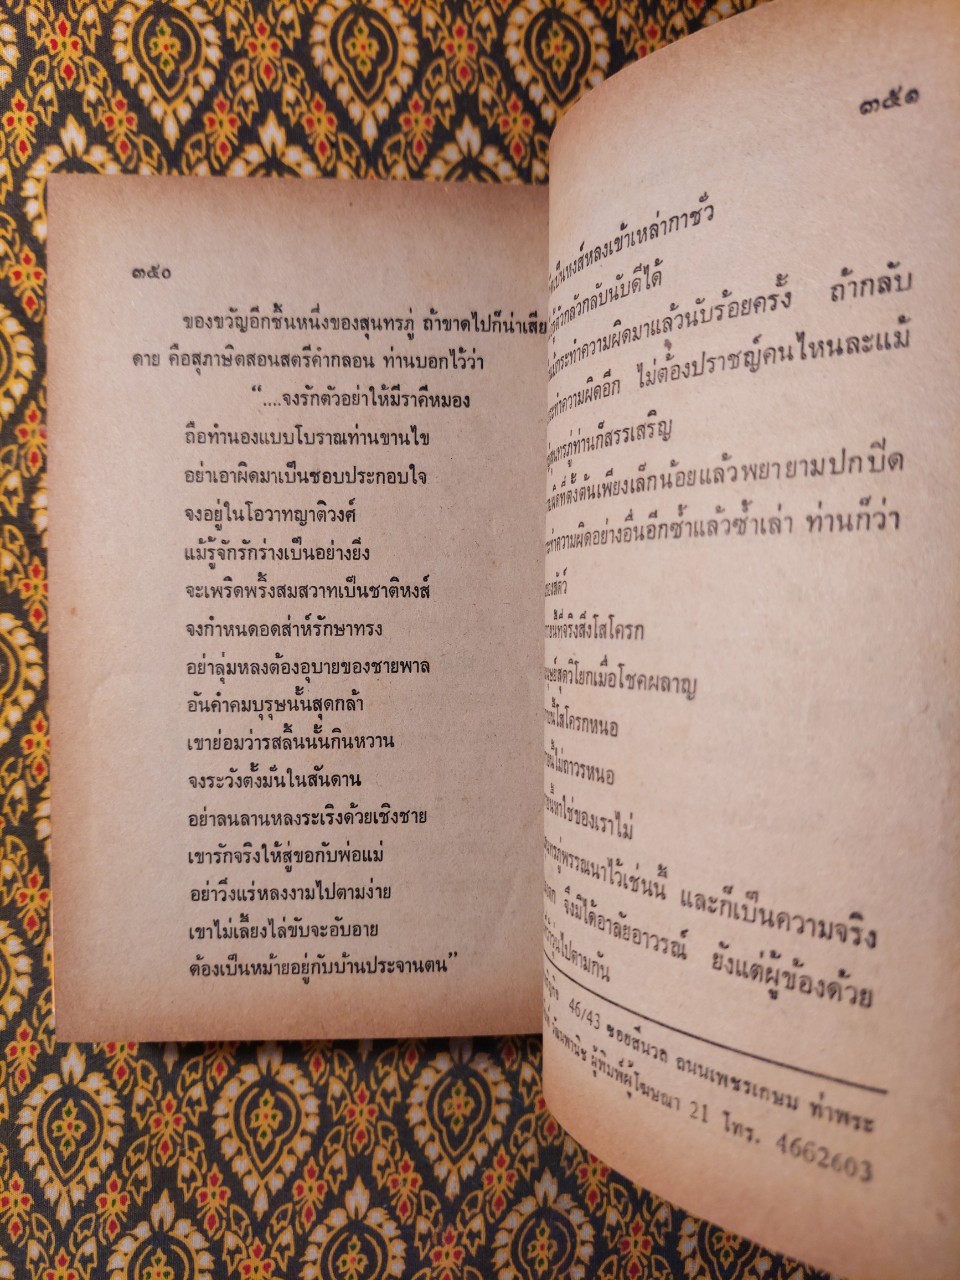 ๓๕๐
ของขวัญอีกชิ้นหนึ่งของสุนทรภู่ ถ้าขาดไปก็น่าเสีย
ดาย คือสุภาษิตสอนสตรีคำกลอน ท่านบอกไว้ว่า
“....จงรักตัวอย่าให้มีราคีหมอง
ถือทำนองแบบโบราณท่านขานไข
อย่าเอาผิดมาเป็นชอบประกอบใจ
จงอยู่ในโอวาทญาติวงศ์
แม้รู้จักรักร่างเป็นอย่างยิ่ง
จะเพริดพริ้งสมสวาทเป็นชาติหงส์
จงกำหนดอดส่าห์รักษาทรง
อย่าลุ่มหลงต้องอุบายของชายพาล
อันคำคมบุรุษนั้นสุดกล้า
เขาย่อมว่ารสลิ้นนั้นกินหวาน
จงระวังตั้งมั่นในสันดาน
อย่าลนลานหลงระเริงด้วยเชิงชาย
เขารักจริงให้สู่ขอกับพ่อแม่
อย่าวิ่งแร่หลงงามไปตามง่าย
เขาไม่เลี้ยงไล่ขับจะอับอาย
ต้องเป็นหม้ายอยู่กับบ้านประจานตน”
๓๕๑
เป็นหงส์หลงเข้าเหล่ากาชั่ว
ตัวกลัวกลับนับดีได้
กระทำความผิดมาแล้วนับร้อยครั้ง ถ้ากลับ
ความผิดอีก ไม่ต้องปราชญ์คนไหนละแม้
สุนทรภู่ท่านก็สรรเสริญ
ที่ตั้งต้นเพียงเล็กน้อยแล้วพยายามปกปิด
ความผิดอย่างอื่นอีกซ้ำแล้วซ้ำเล่า ท่านก็ว่า
ของสัตว์
ที่จริงสิ่งโสโครก
สุดวิโยกเมื่อโชคผลาญ
นี้โสโครกหนอ
นี้ไม่ถาวรหนอ
หาใช่ของเราไม่
พรรณนาไว้เช่นนี้ และก็เป็นความจริง
จึงมิได้อาลัยอาวรณ์ ยังแต่ผู้ข้องด้วย
วุ่นไปตามกัน
46/43 ซอยสีนวล ถนนเพชรเกษม ท่าพระ
วัฒนพานิช ผู้พิมพ์ผู้โฆษณา 21 โทร. 4662603